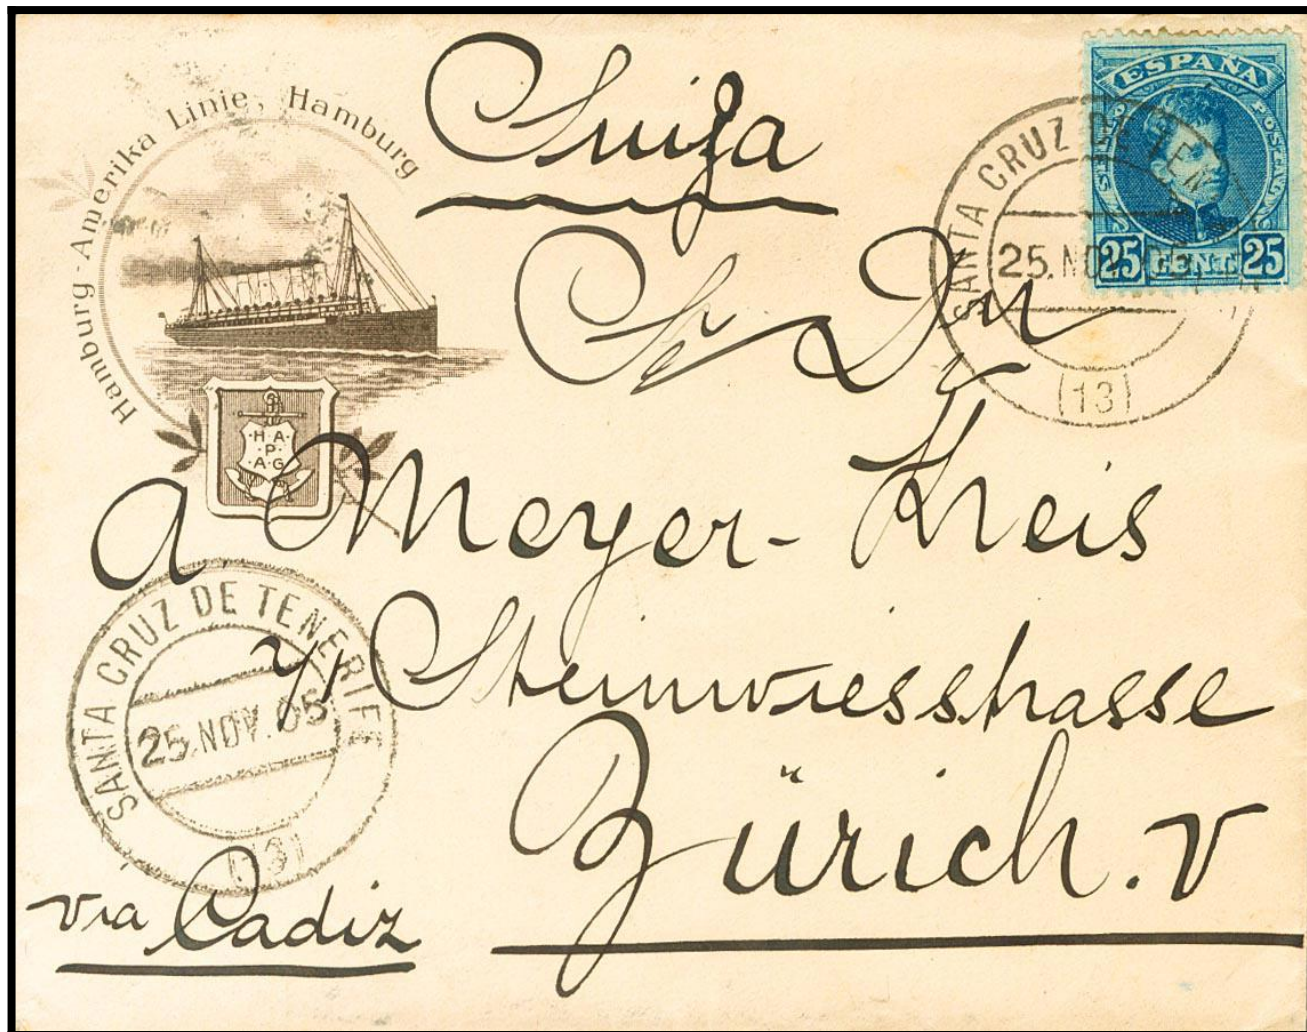 Hamburg-Amerika Linie, Hamburg
Suiza
ESPAÑA
25 CENT 25
SANTA CRUZ DE TEN
25. NOV. 05
(13)
H. A.
P.
A. G.
Sr Dn
A. Meyer-Kreis
Steinwiesstrasse
Zürich. V
SANTA CRUZ DE TENERIFE
25. NOV. 05
(13)
via Cadiz